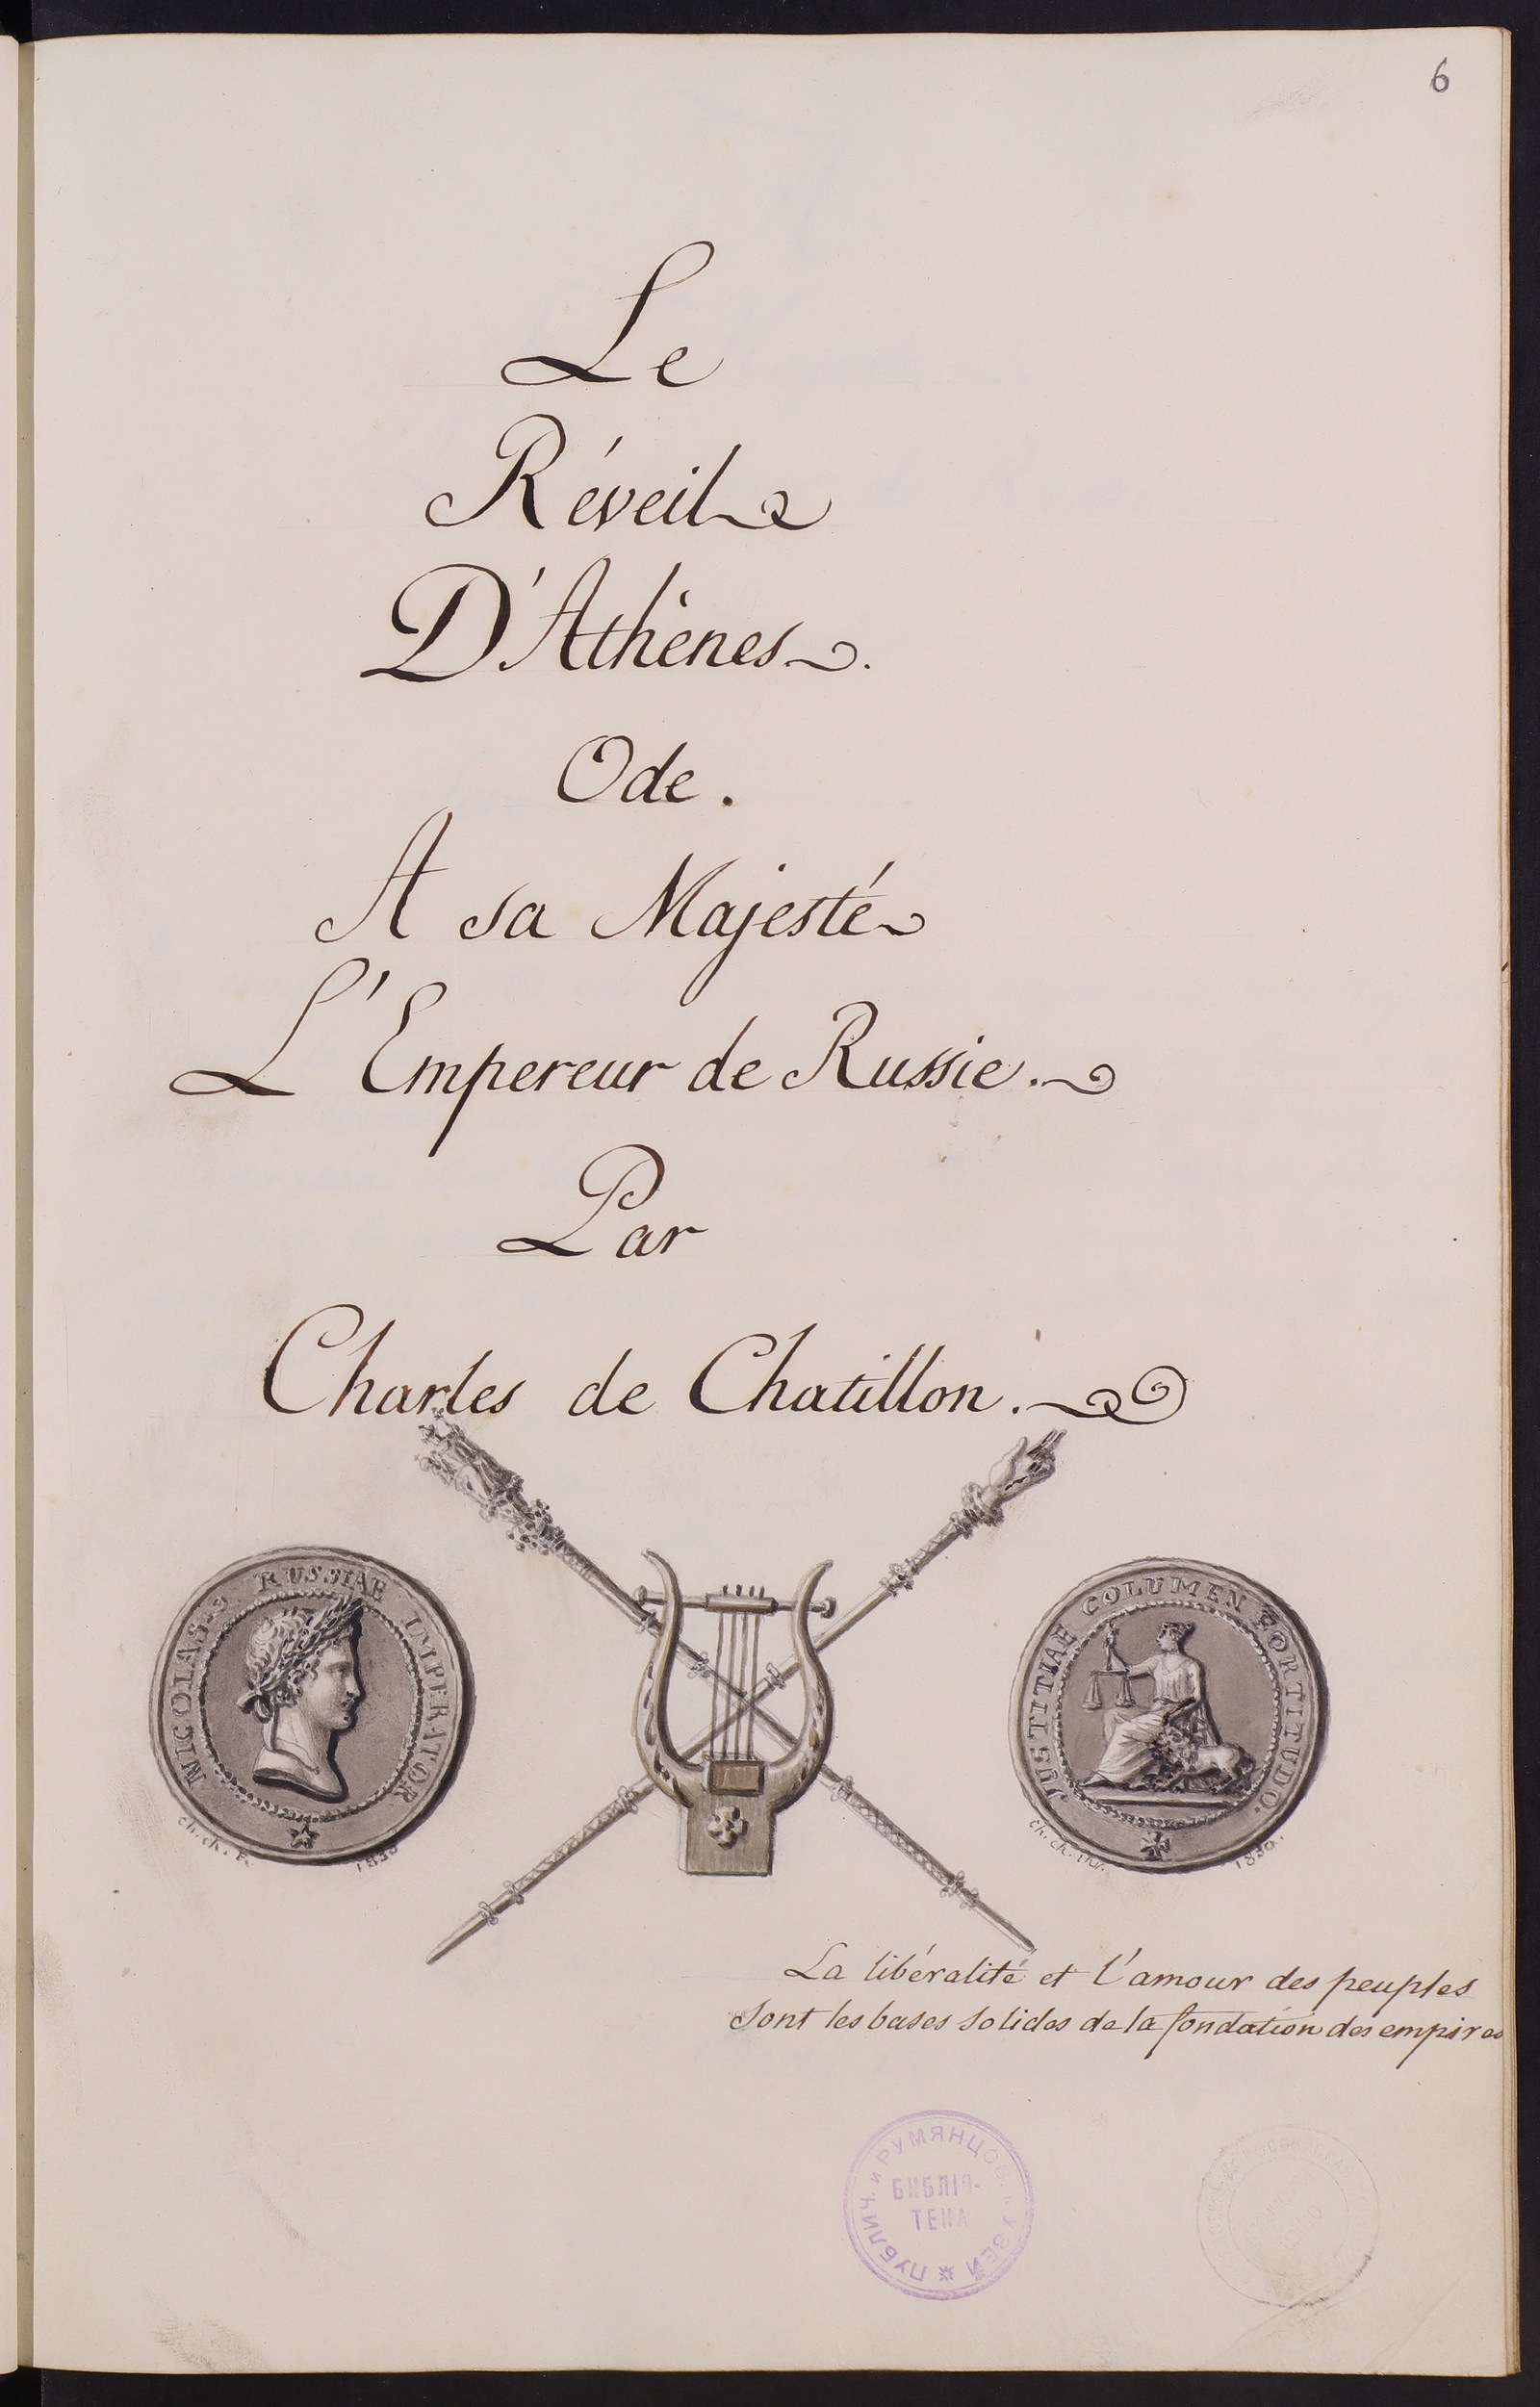 6
Le
Réveil
D'Athènes.
Ode.
A sa Majesté
L'Empereur de Russie.
Par
Charles de Chatillon.
NICOLAS RUSSIAE IMPERATOR
JUSTITIAE COLUMEN FORTITUDO.
ch. ch. F. 1830
ch. ch. inv. 1830.
La libéralité et l'amour des peuples
sont les bases solides de la fondation des empires
ПУБЛИЧ. и РУМЯНЦОВ. МУЗЕИ
БИБЛІО-
ТЕКА